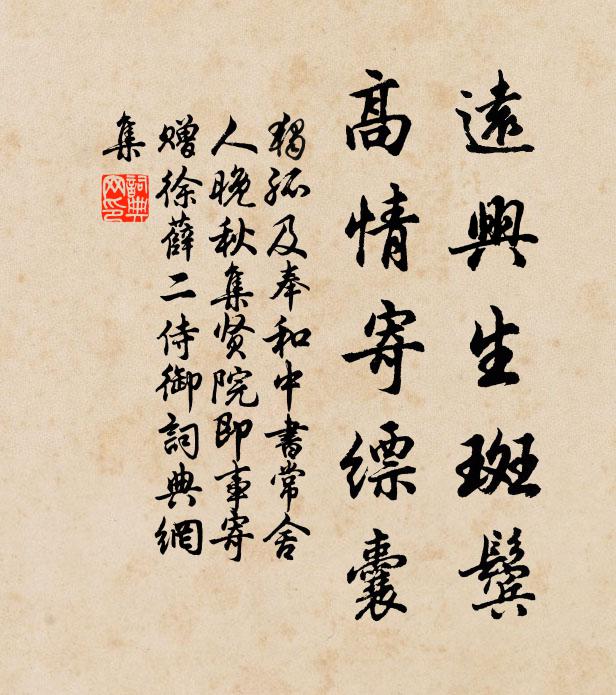 遠興生斑鬓
高情寄缥囊
獨孤及奉和中書常舍
人晚秋集贤院即事寄
赠徐薛二侍御詞典網
集
詞典
网印